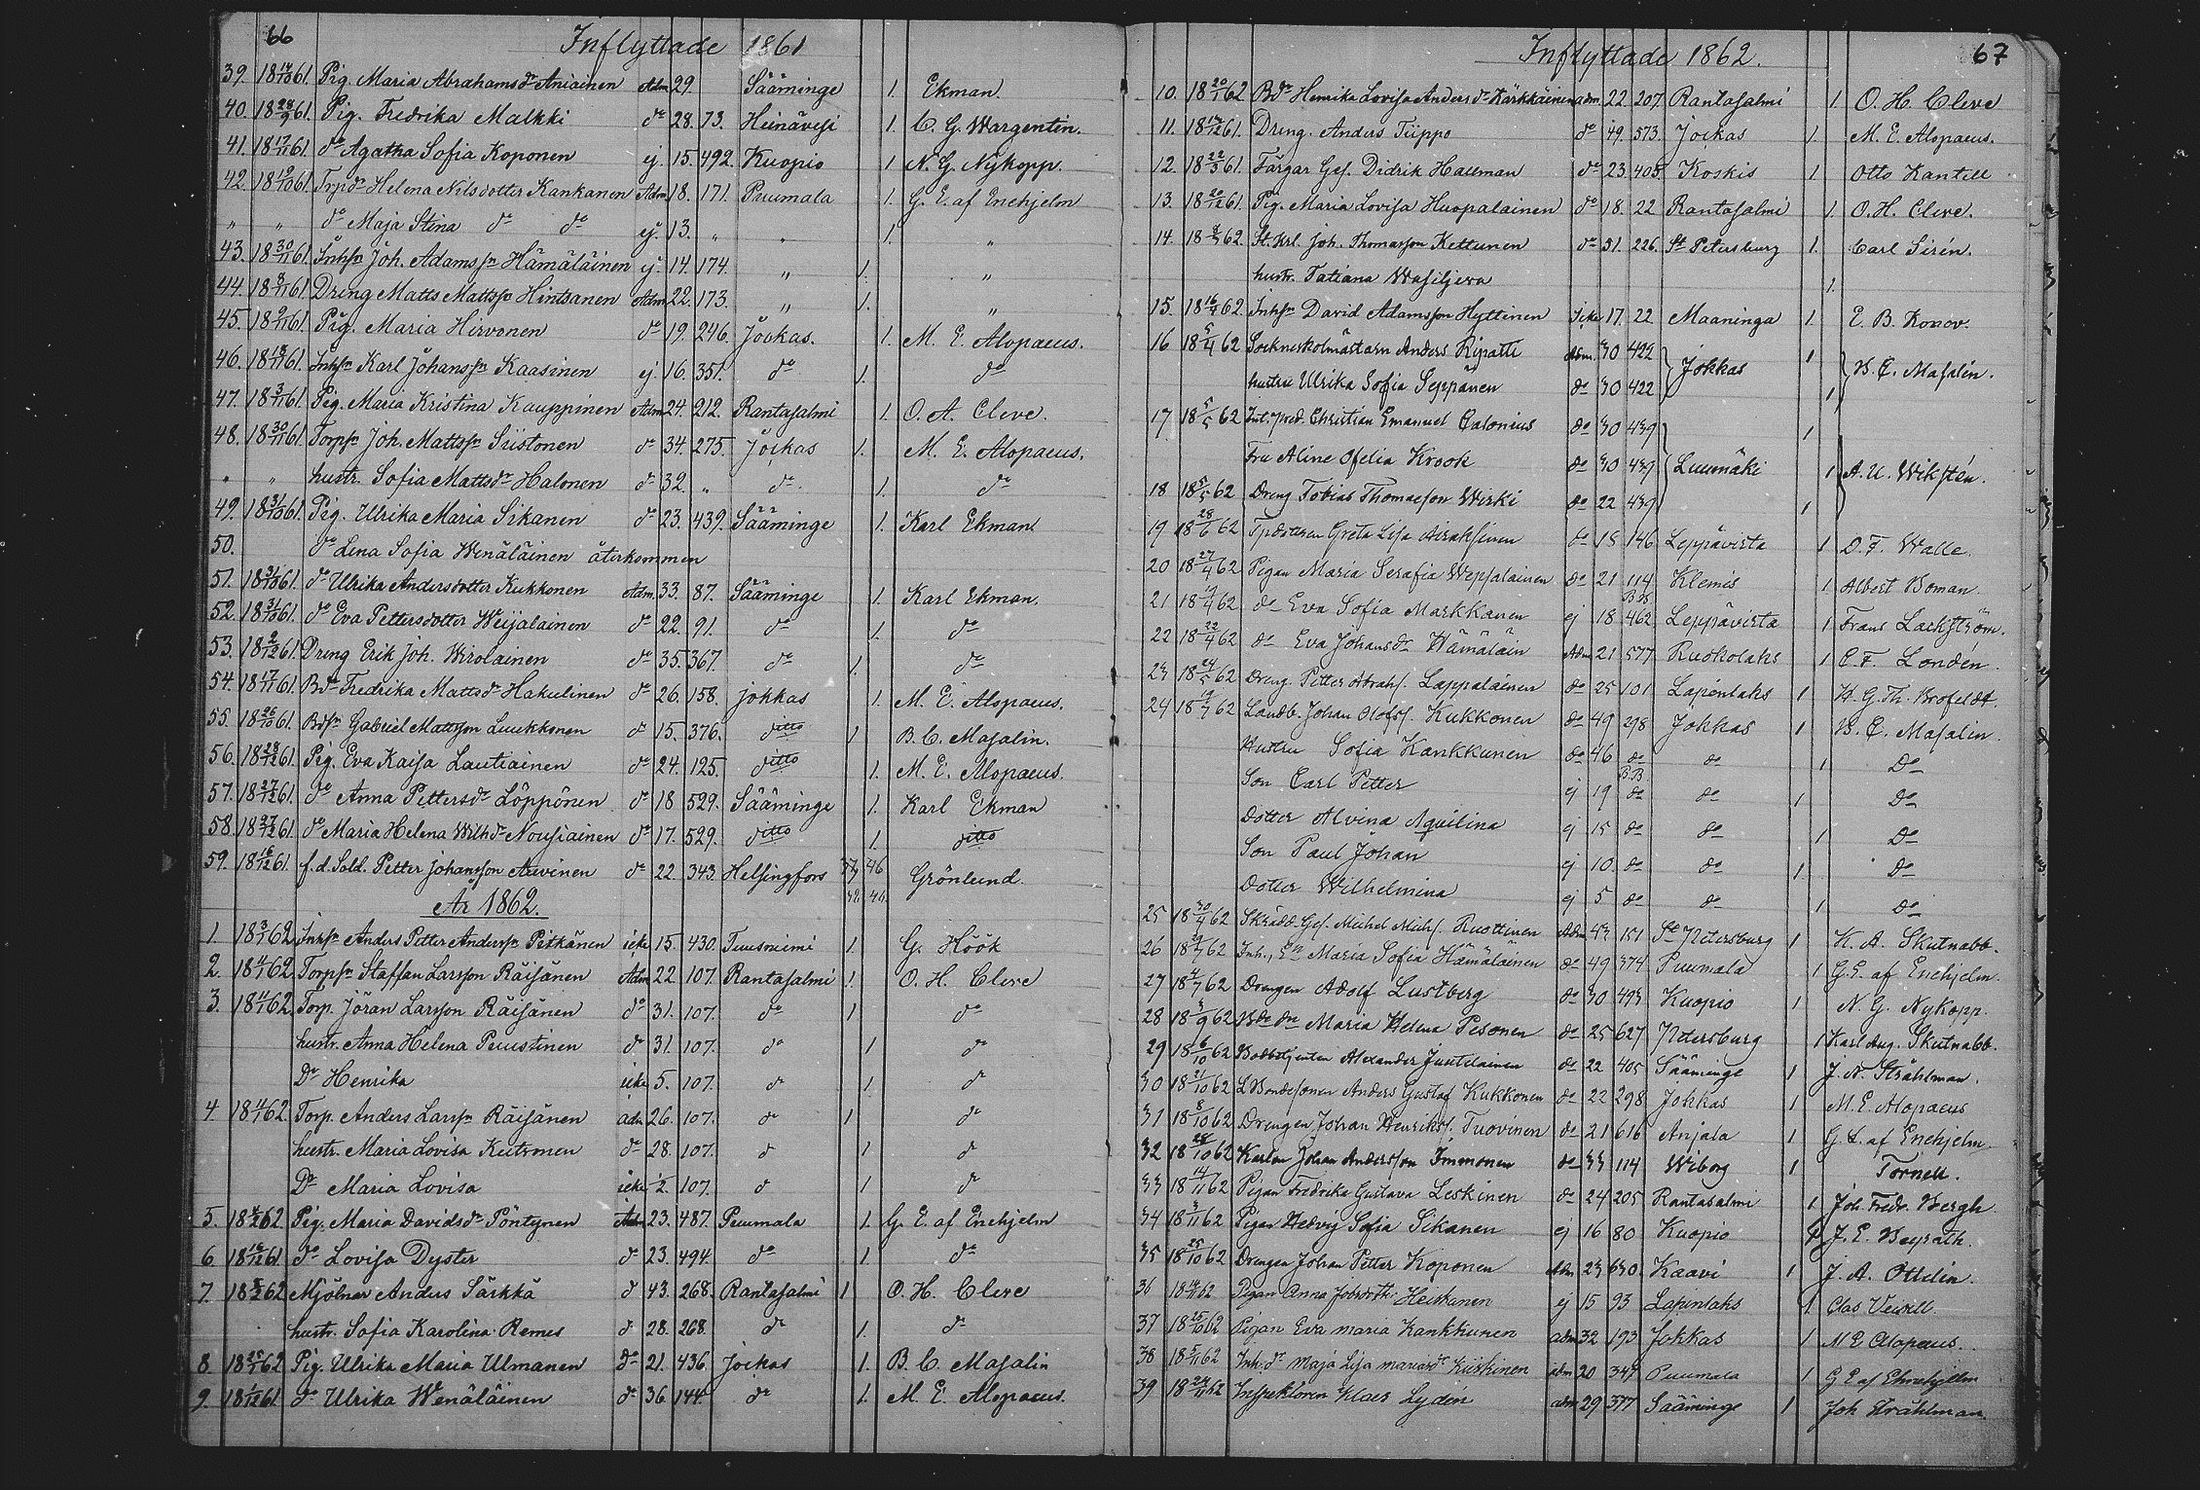 66
Inflyttade 1861
39. 18 14/10 61. Pig. Maria Abrahamsdr Aniainen Adm 29. Sääminge 1. Ekman.
40. 18 28/9 61. Pig. Fredrika Malkki do 28. 73. Heinävesi 1. C. G. Wargentin.
41. 18 17/11 61. do Agatha Sofia Koponen ej. 15. 492. Kuopio 1 N. G. Nykopp.
42. 18 19/10 61. Trpdr Helena Nilsdotter Kankanen Adm 18. 171. Puumala 1. G. E. af Enehjelm
" " do Maja Stina do do ej. 13. " " 1. "
43. 18 30/11 61. Inhsn Joh. Adamssn Hämäläinen ej. 14. 174. " 1. "
44. 18 61. Dreng Matts Mattssn Hintsanen Adm 22. 173. " 1. "
45. 18 61. Pig. Maria Hirvonen do 19. 246. Jockas. 1. M. E. Alopaeus.
46. 18 61. Inhsn Karl Johanssn Kaasinen ej. 16. 351. do 1. do
47. 18 3/11 61. Pig. Maria Kristina Kauppinen Adm 24. 212. Rantasalmi 1. O. A. Cleve.
48. 18 30/11 61. Torpsn Joh. Mattssn Siistonen do 34. 275. Jockas 1. M. E. Alopaeus.
" " hustr. Sofia Mattsdr Halonen do 32. " do 1. do
49. 18 31/10 61. Pig. Ulrika Maria Sikanen do 23. 439. Sääminge 1. Karl Ekman
50. do Lena Sofia Wenäläinen återkommen
51. 18 31/10 61. do Ulrika Andersdotter Kukkonen Adm. 33. 87. Sääminge 1. Karl Ekman.
52. 18 31/10 61. do Eva Pettersdotter Weijalainen do 22. 91. do 1. do
53. 18 2/12 61. Dreng Erik Joh. Wirolainen do 35. 367. do 1. do
54. 18 17/11 61. Bdr Fredrika Mattsdr Hakulinen do 26. 158. jokkas 1. M. E. Alopaeus.
55. 18 26/10 61. Bdsn Gabriel Mattsson Luukkonen do 15. 376. ditto 1 B. C. Masalin.
56. 18 28/12 61. Pig. Eva Kaisa Lautiainen do 24. 125. ditto 1. M. E. Alopaeus.
57. 18 27/12 61. do Anna Pettersdr Löppönen do 18 529. Sääminge 1. Karl Ekman
58. 18 27/12 61. do Maria Helena Wilhdr Nousiainen do 17. 529. ditto 1. ditto
59. 18 16/12 61. f. d. Sold. Petter Johansson Auvinen do 22. 343. Helsingfors 37 46 Grönlund.
År 1862.
1. 18 3/1 62 Inhsn Anders Petter Anderssn Pitkänen icke 15. 430. Tuusniemi 1. G. Höök
2. 18 4/1 62. Torpsn Staffan Larsson Räisänen Adm 22. 107. Rantasalmi 1. O. H. Cleve
3. 18 4/1 62. Torp. Jöran Larsson Räisänen do 31. 107. do 1 do
hustr. Anna Helena Puustinen do 31. 107. do 1 do
Dr Henrika icke 5. 107. do 1. do
4 18 4/1 62. Torp. Anders Larssn Räisänen adm 26. 107. do 1 do
hustr. Maria Lovisa Kutvonen do 28. 107. do 1 do
Dr Maria Lovisa icke 2. 107. do 1 do
5. 18 62 Pig. Maria Davidsdr Pöntynen Adm 23. 487. Puumala 1. G. E. af Enehjelm
6 18 16/12 61. do Lovisa Dyster do 23. 494. do 1. do
7. 18 62 Mjölnar Anders Särkkä do 43. 268. Rantasalmi 1 O. H. Cleve
hustr. Sofia Karolina Remes do 28. 268. do 1. do
8. 18 62 Pig. Ulrika Maria Ulmanen do 21. 436. Jockas 1. B. C. Masalin
9. 18 1/12 61. do Ulrika Wenäläinen do 36. 144. do 1. M. E. Alopaeus.
Inflyttade 1862.
67
10. 18 20/1 62 Bdr Henrika Lovisa Andersdr Kärkkäinen adm. 22. 207. Rantasalmi 1. O. H. Cleve
11. 18 61. Dreng. Anders Tiippo do 49. 573. Jockas 1. M. E. Alopaeus.
12. 18 22/3 61. Färgar Ges. Didrik Hallman do 23. 405. Koskis 1 Otto Kantell
13. 18 61. Pig. Maria Lovisa Huopalainen do 18. 22 Rantasalmi 1. O. H. Cleve.
14. 18 62. St. Krl. Joh. Thomasson Kettunen do 31. 226. St Petersburg 1. Carl Sirén.
hustr. Tatiana Wasiljewa 1.
15. 18 16/4 62. Inhsn David Adamsson Hyttinen Icke 17. 22 Maaninga 1. E. B. Konov.
16 18 5/4 62 Sockneskolmästarn Anders Ripatti Adm. 30 422 Jokkas 1 B. C. Masalin.
hustru Ulrika Sofia Seppänen do 30 422 1
17 18 5/5 62 Christian Emanuel Calonius do 30 439 1
Fru Aline Ofelia Krook do 30 439 Luumäki 1 A. U. Wiksten.
18 18 5/5 62 Dreng Tobias Thomasson Wirki do 22 439 1
19 18 28/6 62 Tpdottren Greta Lisa Airaksinen do 18 146 Leppävirta 1 D. F. Walle.
20 18 27/4 62 Pigan Maria Serafia Wepsalainen do 21 114 Klemis 1 Albert Boman
21 18 62 do Eva Sofia Markkanen ej 18 B.B. 462 Leppävirta 1 Frans Lackström.
22 18 22/4 62 do Eva Johansdr Hämäläin Adm 21 577 Ruokolaks 1 C. F. Londén.
23 18 24/5 62 Dreng. Petter Abrahs. Lappalainen do 25 101 Lapenlaks 1 H. G. Th. Brofeldt.
24 18 62 Landb. Johan Olofss. Kukkonen do 49 298 Jokkas 1 B. C. Masalin.
Hustru Sofia Kankkunen do 46 do do 1 Do
Son Carl Petter ej 19 B.B do do 1 Do
Dotter Alvina Aquilina ej 15 do do 1 Do
Son Paul Johan ej 10 do do 1 Do
Dotter Wilhelmina ej 5 do do 1 Do
25 18 30/4 62 Skrädd. Ges. Michel Michs. Ruottinen Adm 43 151 St Petersburg 1 K. A. Skutnabb.
26 18 62 Inh., Maria Sofia Hämäläinen do 49 374 Puumala 1 G. E. af Enehjelm.
27 18 62 Drengen Adolf Lustberg do 30 493 Kuopio 1 N. G. Nykopp.
28 18 62 Maria Helena Pesonen do 25 627 Petersburg 1 Karl Aug. Skutnabb.
29 18 6/10 62 Bodbetjenten Alexander Juutilainen do 22 405 Sääminge 1 J. N. Stråhlman.
30 18 21/10 62 LBondesonen Anders Gustaf Kukkonen do 22 298 Jokkas 1 M. E. Alopaeus
31 18 8/10 62 Drengen Johan Henrikss. Tuovinen do 21 616 Anjala 1 G. L. af Enehjelm.
32 18 28/10 62 Karlen Johan Andersson Immonen do 33 114 Wiborg 1 Törnell.
33 18 14/11 62 Pigan Fredrika Gustava Leskinen do 24 205 Rantasalmi 1 Joh. Fredr. Bergh.
34 18 3/11 62 Pigan Hedvig Sofia Sikanen ej 16 80 Kuopio 1 J. E. Beyrath.
35 18 25/10 62 Drengen Johan Petter Koponen Adm 23 630. Kaavi 1 J. A. Ottelin.
36 18 62 Pigan Anna Jobsdottr Heiskanen ej 15 93 Lapinlaks 1 Clas Veisell.
37 18 62 Pigan Eva maria Kankkunen adm 32 193 Jokkas 1 M E Alopaeus.
38 18 62 Inh. dr Maja Lisa mariasdr Kiiskinen adm 20 347 Puumala 1 G E af Ehnehjelm
39 18 62 Inspektoren Klaes Lydén adm 29 377 Sääminge 1 Joh Stråhlman.